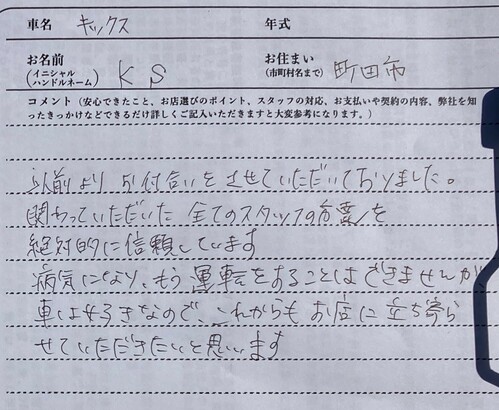 車名 キックス 年式
お名前 (イニシャル ハンドルネーム) K S お住まい (市町村名まで) 町田市
コメント（安心できたこと、お店選びのポイント、スタッフの対応、お支払いや契約の内容、弊社を知
ったきっかけなどできるだけ詳しくご記入いただきますと大変参考になります。）
以前より お付合いをさせていただいておりました。
関わっていただいた 全てのスタッフの方々を
絶対的に信頼しています
病気により、もう 運転をすることはできませんが
車は好きなので、これからも お店に立ち寄ら
せていただきたいと思います